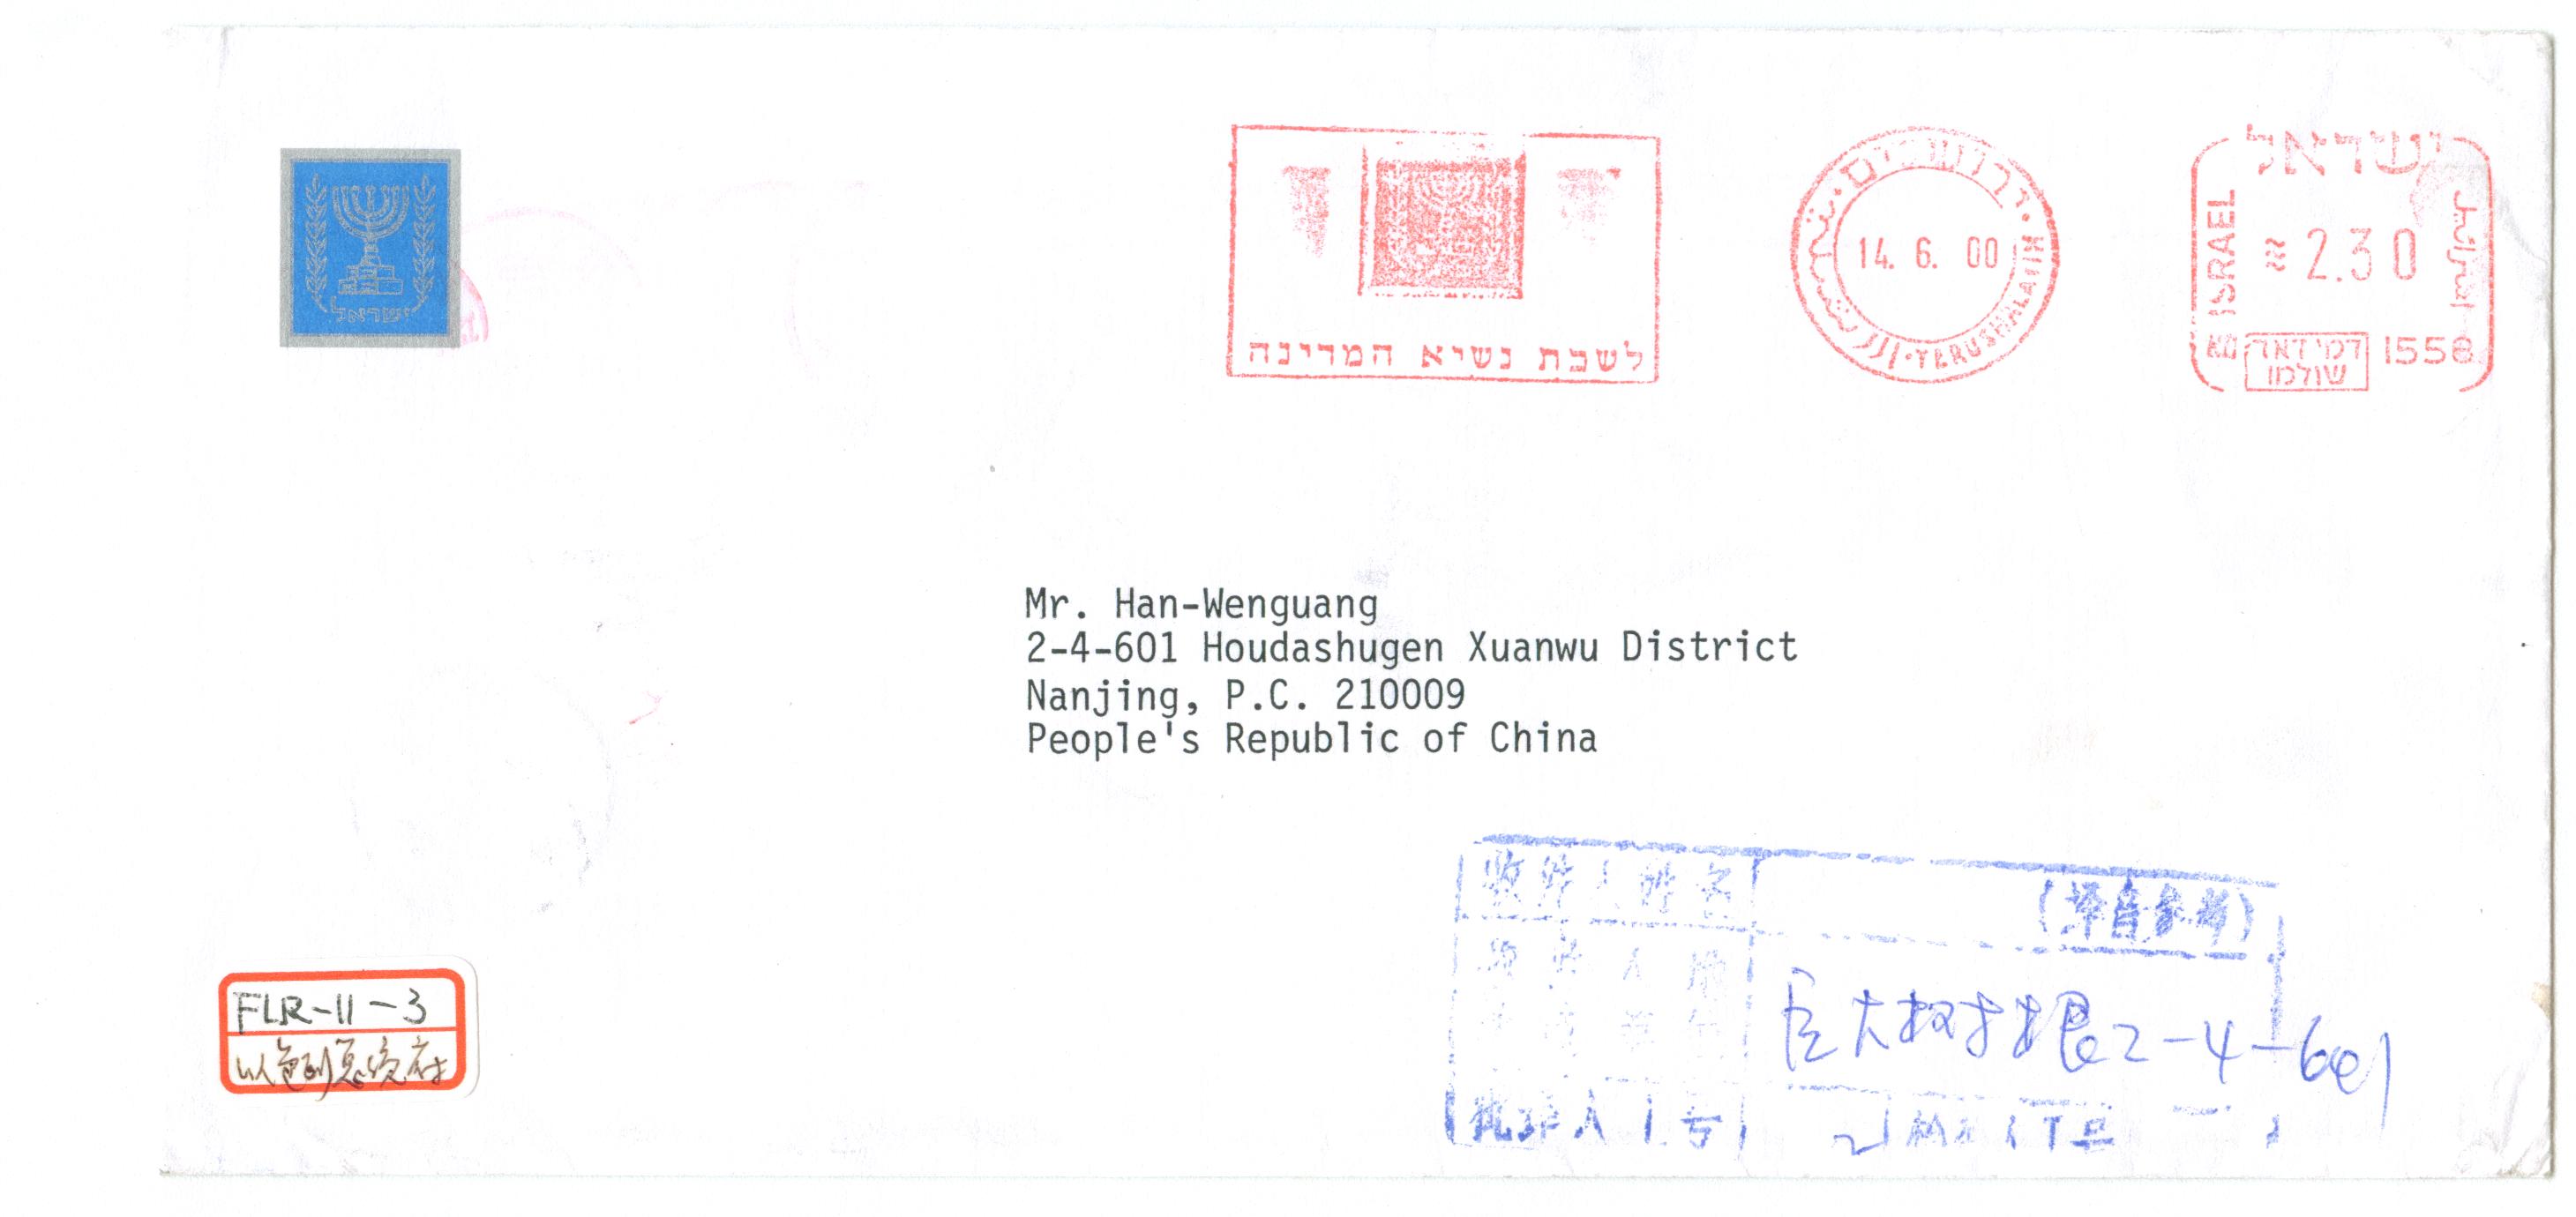 ישראל
לשכת נשיא המדינה
ירושלים
YERUSHALAIM
14. 6. 00
ישראל
ISRAEL
اسرائيل
2.30
דמי דאר
שולמו
1558
Mr. Han-Wenguang
2-4-601 Houdashugen Xuanwu District
Nanjing, P.C. 210009
People's Republic of China
收件人姓名
(译自参考)
后大树根2-4-601
FLR-11-3
以色列总统府